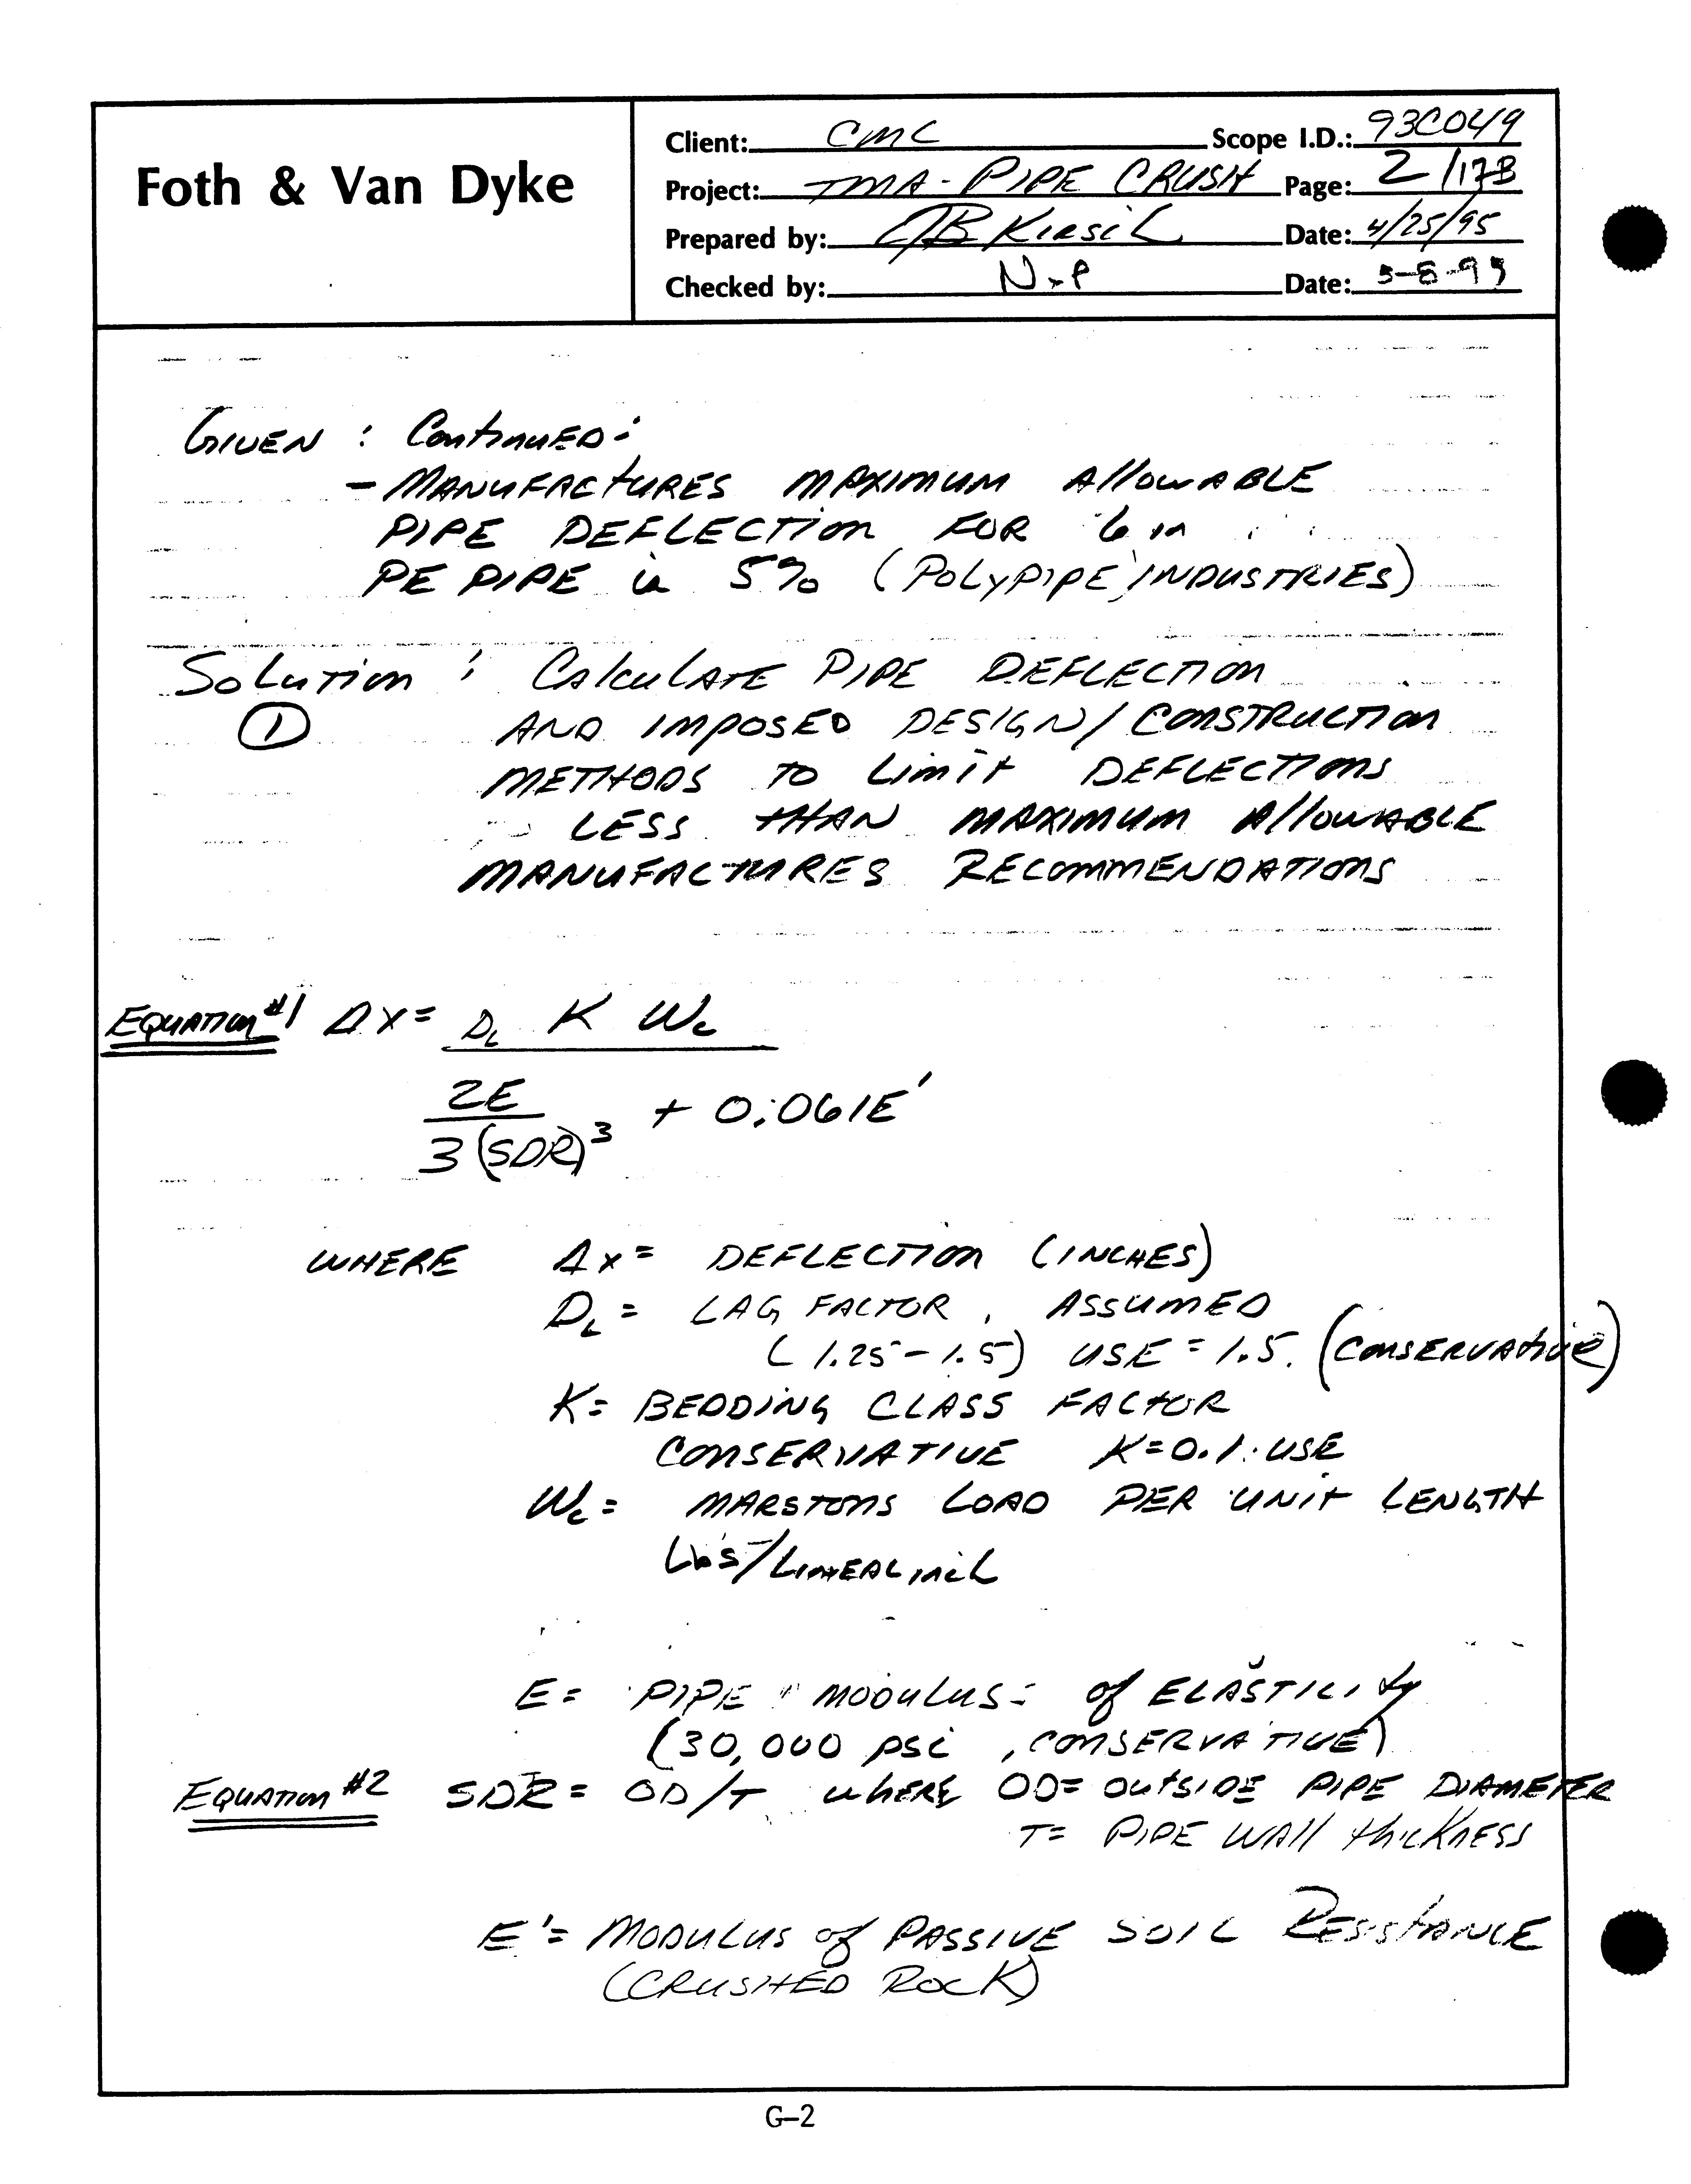 Foth & Van Dyke
Client: CMC Scope I.D.: 93C049
Project: TMA - PIPE CRUSH Page: 2/17B
Prepared by: Date: 4/25/95
Checked by: Date:
GIVEN : Continued:
- MANUFACTURES MAXIMUM AllowABLE
PIPE DEFLECTION FOR 6 in
PE PIPE is 5% (POLYPIPE INDUSTRIES)
Solution : CALCULATE PIPE DEFLECTION
1 AND IMPOSED DESIGN/CONSTRUCTION
METHODS TO LIMIT DEFLECTIONS
LESS THAN MAXIMUM AllowABLE
MANUFACTURES RECOMMENDATIONS
EQUATION #1 ΔX = D_L K W_c
2E / 3(SDR)³ + 0.061E'
WHERE ΔX = DEFLECTION (INCHES)
D_L = LAG FACTOR, ASSUMED
(1.25 - 1.5) USE = 1.5. (CONSERVATIVE)
K = BEDDING CLASS FACTOR
CONSERVATIVE K = 0.1. USE
W_c = MARSTONS LOAD PER UNIT LENGTH
Lbs/LINEAL inch
E = PIPE MODULUS of ELASTICITY
(30,000 psi, CONSERVATIVE)
EQUATION #2 SDR = OD/T where OD = OUTSIDE PIPE DIAMETER
T = PIPE WALL thICKNESS
E' = MODULUS of PASSIVE SOIL RESISTANCE
(CRUSHED ROCK)
G-2